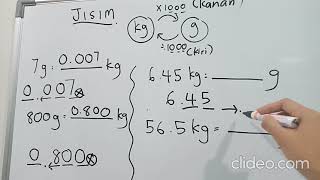 JISIM
×1000 (Kanan)
kg g
÷1000 (Kiri)
7g = 0.007 kg
0.007
800g = 0.800 kg
0.800
6.45 kg = ______ g
6.45 →
56.5 kg = ______
clideo.com